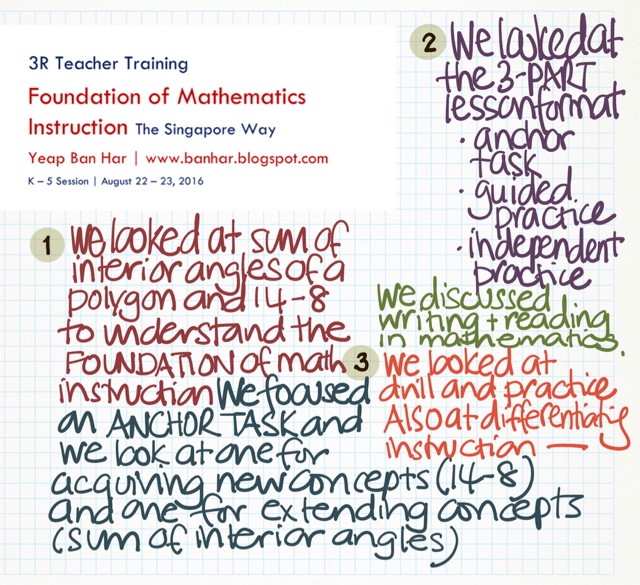 3R Teacher Training
Foundation of Mathematics
Instruction The Singapore Way
Yeap Ban Har | www.banhar.blogspot.com
K – 5 Session | August 22 – 23, 2016
1
We looked at sum of
interior angles of a
polygon and 14-8
to understand the
FOUNDATION of math
instruction We focused
on ANCHOR TASK and
we look at one for
acquiving new concepts (14-8)
and one for extending concepts
(sum of interior angles)
2
We looked at
the 3-PART
lesson format
· anchor
task
· guided
practice
· independent
practice
We discussed
writing + reading
in mathematics.
3
We looked at
drill and practice
Also at differentiating
instruction —